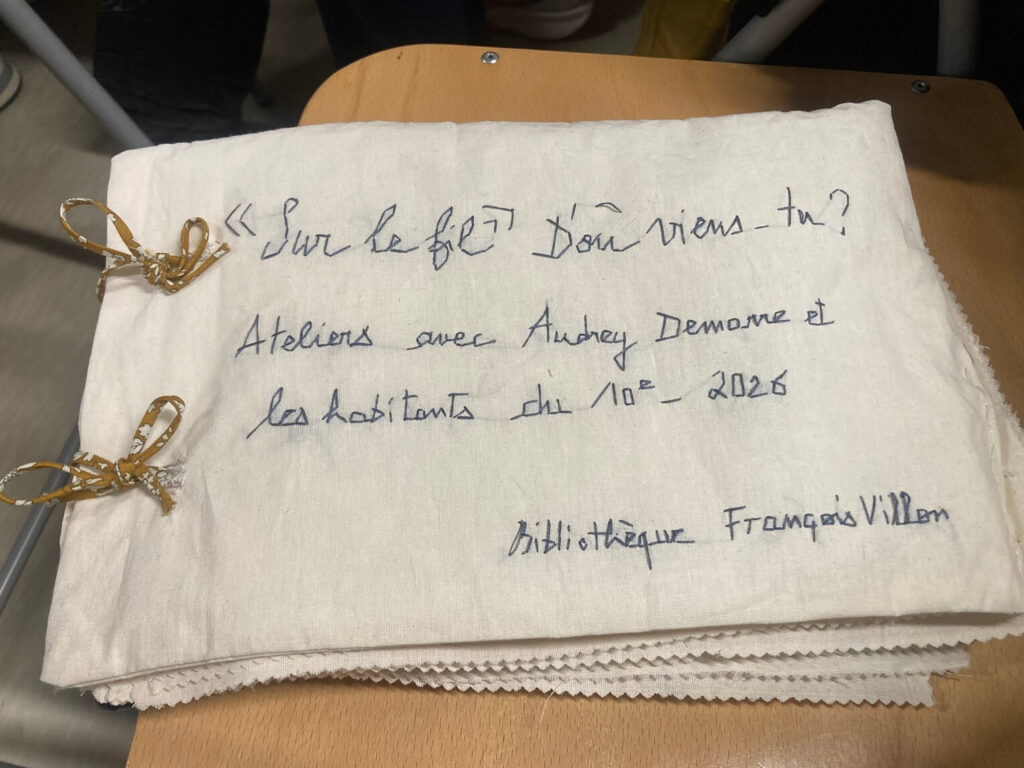 « Sur le fil » D'où viens-tu ?
Ateliers avec Audrey Demarre et
les habitants du 10e - 2026
Bibliothèque François Villon